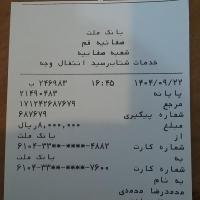 بانک ملت
صفائیه قم
شعبه صفائیه
خدمات شتاب‌رسید انتقال وجه
۱۴۰۴/۰۹/۲۲ ۱۶:۴۵ ۲۴۶۹۸۳ ب
پایانه ۲۱۴۹۰۴۸۳
مرجع ۱۷۱۲۴۲۶۸۷۶۷۹
شماره پیگیری ۶۸۷۶۷۹
مبلغ ۸,۰۰۰,۰۰۰ریال
از بانک ملت
شماره کارت ۶۱۰۴-۳۳**-****-۴۸۸۲
به بانک ملت
شماره کارت ۶۱۰۴-۳۳**-****-۷۶۰۰
به نام
محمدرضا محمدی